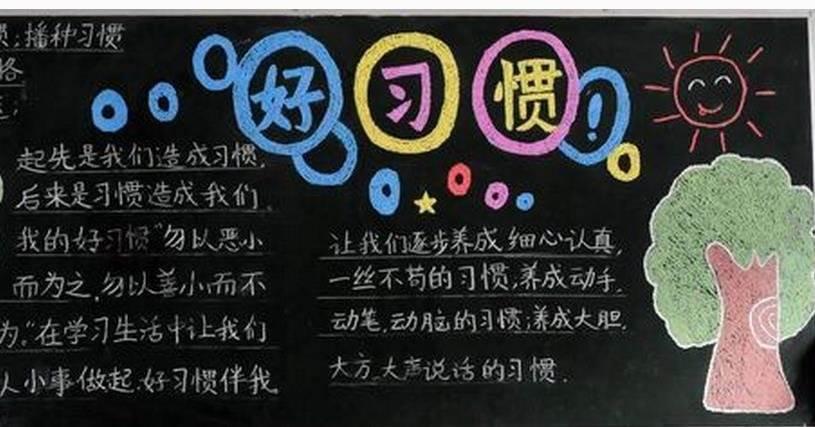 好习惯!
惯;播种习惯
格
起先是我们造成习惯,
后来是习惯造成我们.
我的好习惯"勿以恶小
而为之,勿以善小而不
为。"在学习生活中让我们
人小事做起.好习惯伴我
让我们逐步养成细心认真,
一丝不苟的习惯;养成动手,
动笔,动脑的习惯;养成大胆,
大方,大声说话的习惯.